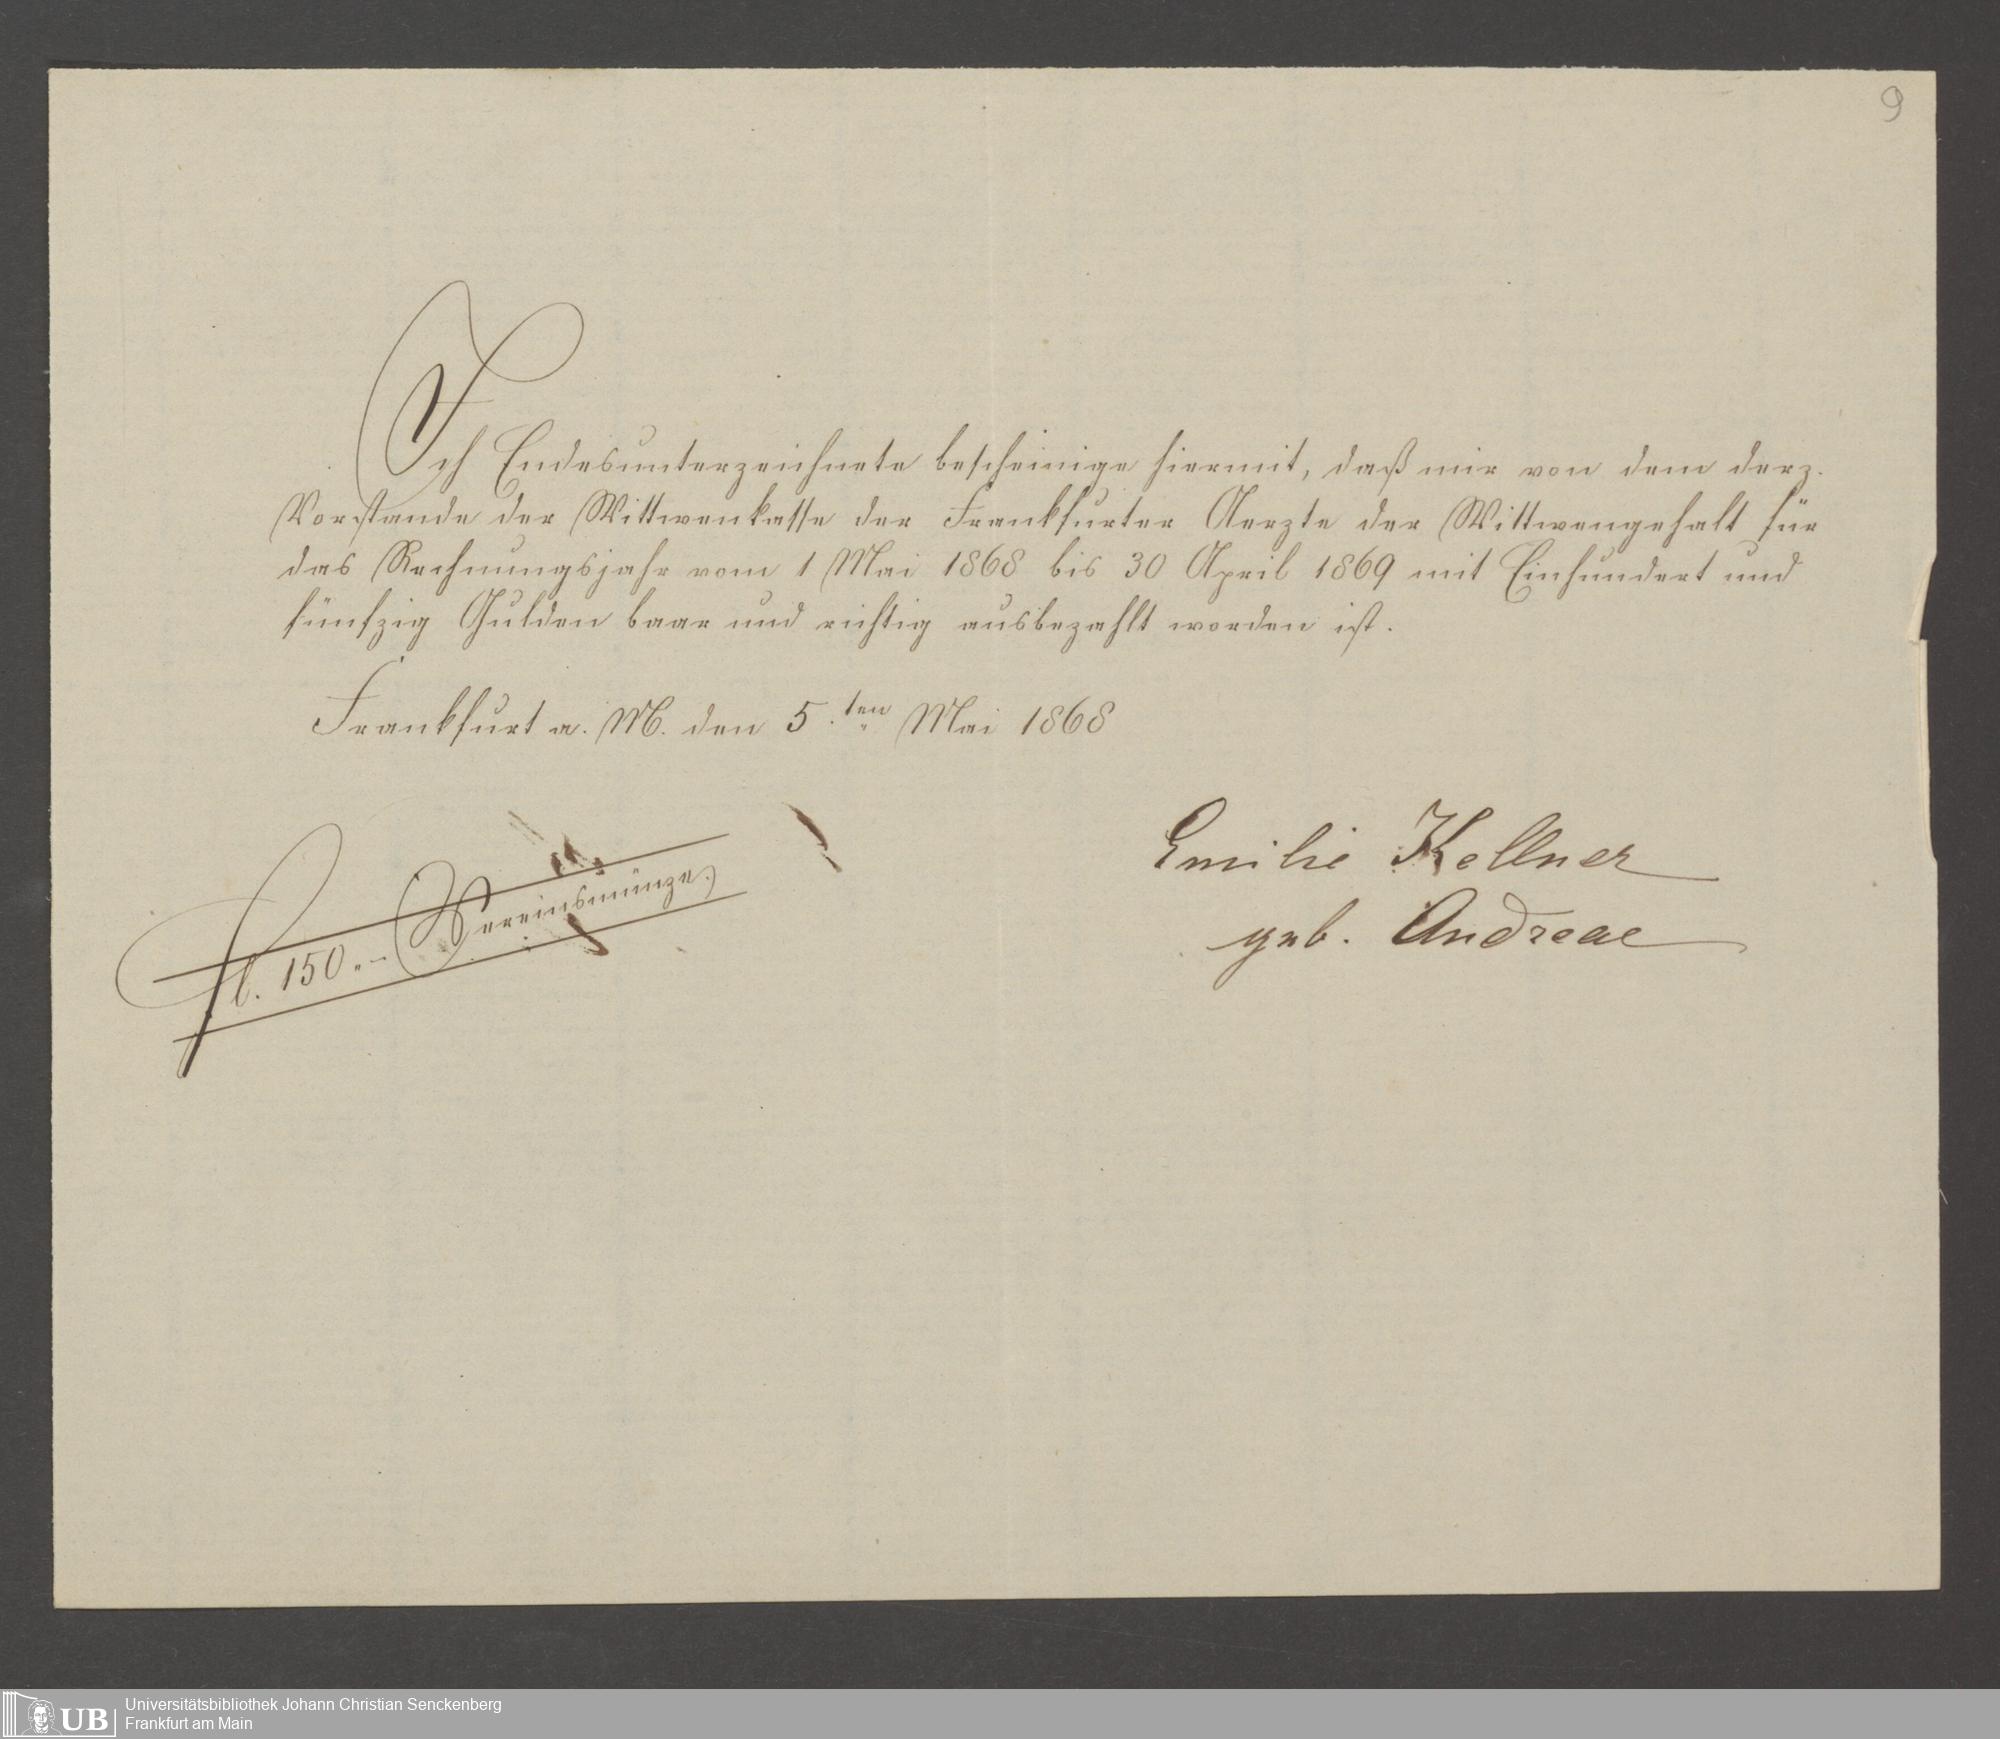 9
Ich Endesunterzeichnete bescheinige hiermit, daß mir von dem derz.
Vorstande der Wittwenkasse der Frankfurter Aerzte der Wittwengehalt für
das Rechnungsjahr vom 1 Mai 1868 bis 30 April 1869 mit Einhundert und
fünfzig Gulden baar und richtig ausbezahlt worden ist.
Frankfurt a. M. den 5.ten Mai 1868
fl. 150.– Vereinsmünze.
Emilie Kellner
geb. Andreae
UB
Universitätsbibliothek Johann Christian Senckenberg
Frankfurt am Main